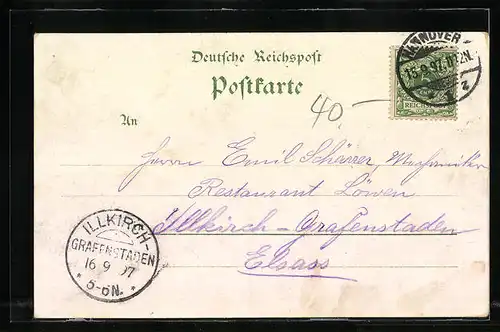 Deutsche Reichspost
Postkarte
40.-
An
HANNOVER
15.9.97.
1 z
REICHSPOST
Herrn Emil Schärrer, Mechaniker
Restaurant Löwen
Illkirch-Grafenstaden
Elsass
ILLKIRCH-
GRAFENSTADEN
16 9 97
* 5-6N. *